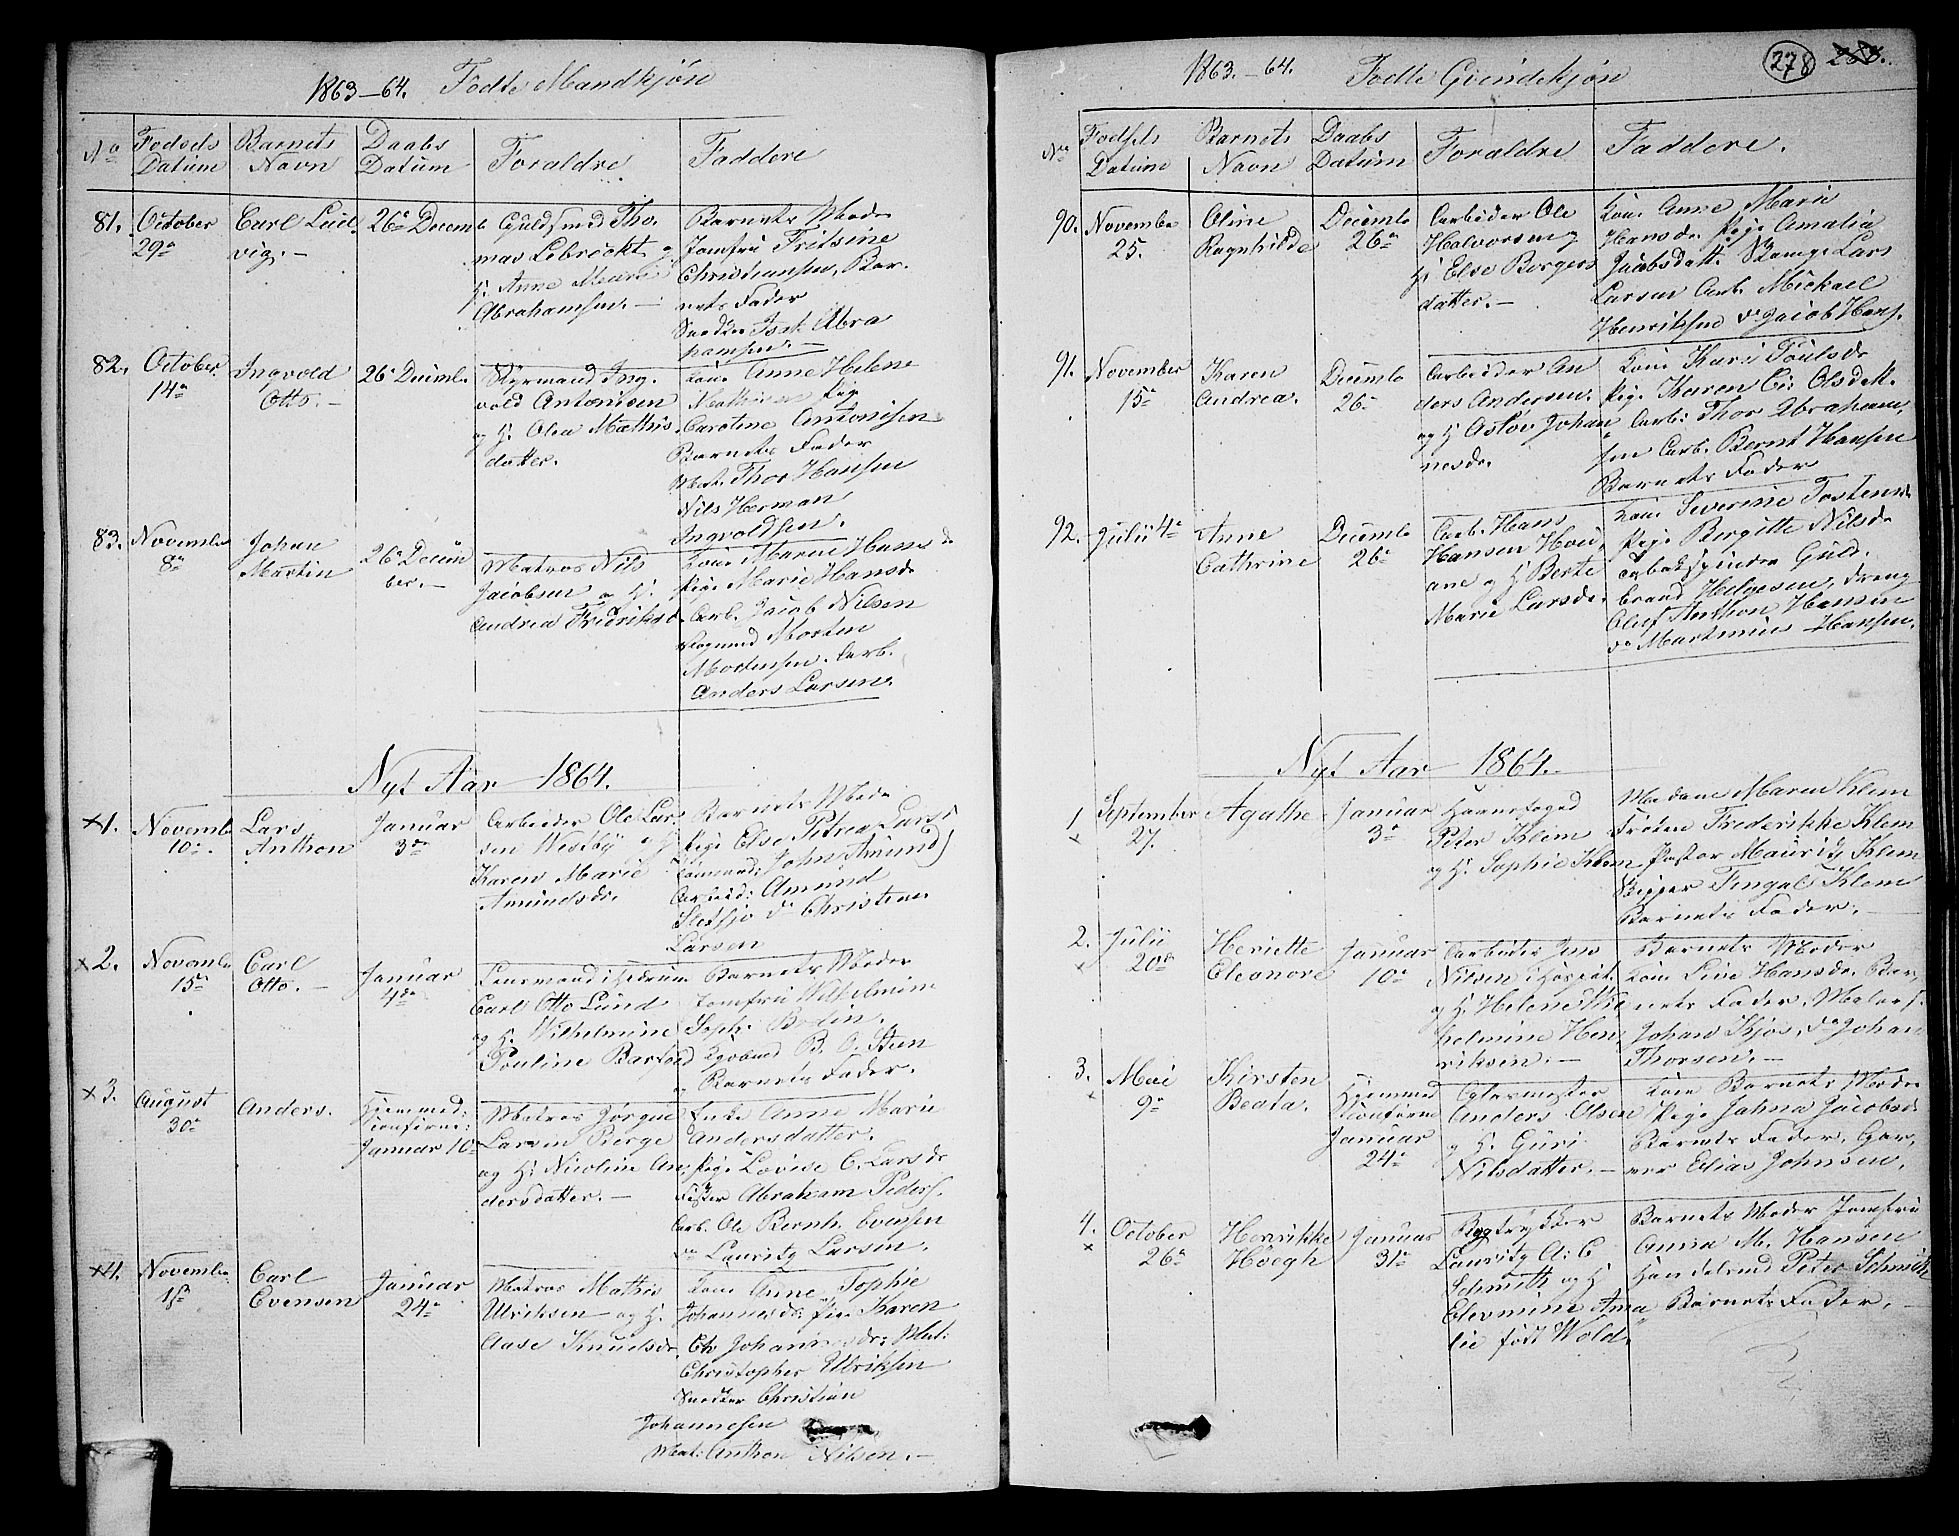 1863–64. Fødte Mandkjøn
No
Fødsels Datum
Barnets Navn
Daabs Datum
Foraldre.
Faddere
81. October 29de
Carl Lud
vig.–
26de Decemb
Guldsmed Tho
mas Lebreckt
H. Anne Marie
Abrahamsen.–
Barnets Moder
Jomfru Fritsine
Christiansen, Bar
nets Fader
Snedker Isak Abra
hamsen.–
82. October 14de
Ingvold
Otto.–
26de Decemb.
Styrmand Ing
vold Antonisen
og H. Olea Mathis
datter.
Kone Anne Helene
Mathisen Pige
Caroline Antonisen
Barnets Fader
Mat. Thor Hansen
Nils Herman
Ingvoldsen.
83. Novemb 8de
Johan
Martin
26de Decem
ber.–
Matros Nils
Jacobsen og H.
Andrea Fredriksd.
Kone Maren Hansd.
Pige Marie Hansd.
Arb. Jacob Nilsen
Morten
Modensen. Arb.
Anders Larsen.
Nyt Aar 1864.
x1. Novemb 10de
Lars
Anthon
Januar
3de
Arbeider Ole Lar
sen Westby og H
Karen Marie
Amundsd.
Barnets Moder
Pige Else Petrea Larsd
John Amund)
Arbeid: Amund
do Christian
Larsen
x2. Novemb 15de
Carl
Otto.–
Januar
4de
Lensmand i Hedrum
Carl Otto Lund
og H. Wilhelmine
Pouline Barfod
Barnets Moder
Jomfru Wilhelmine
Soph. Bodin.
Kjøbmd B. O. Steen
Barnets Fader.
x3. August 30de
Anders.
Hjemmed:
Confirme:
Januar 10de
Matros Jørgen
Larsen Berge
og H: Nicoline An
dersdatter.–
Enke Anne Marie
Andersdatter.
Pige Lovise C. Larsd
Fisker Abraham Peders.
Arb. Ole Bernh. Evensen
do Lauritz Larsen.
x4. Novemb
Carl
Evensen
Januar
24de
Matros Mathis
Ulriksen og H.
Aase Knudsd.
Kone Anne Sophie
Johannesd: Pige Karen
Ch Johannesdr: Mat:
Christopher Ulriksen
Snedker Christian
Johannesen
Mat: Anthon Nilsen.–
278
1863.–64. Fødte Qvindekjøn
No
Fødsels Datum
Barnets Navn
Daabs Datum
Foraldre
Faddere.
90. Novembe 25.
Oline
Ragnhilde
Decembe
26de
Arbeider Ole
Halvorsen og
H. Else Borgers
datter.–
Kone Anne Marie
Hansd. Pige Amalia
Jacobsdatt. Lars
Larsen Arb. Mickael
Henriksen do Jacob Hans.
91. November 15de
Karen
Andrea.
Decembe
26de
Arbeider An
ders Andersen.
og H Aslov Johan
nesdr.
Kone Kari Poulsdr
Pige Karen C: Olsdatt.
Arb: Thor Abraham,
sen Arb. Bernt Hansen
Barnets Fader
92. Julii 4de
Anne
Cathrine
Decembe
26de
Arb. Hans
Hansen
og H Berte
Marie Larsdr.
Kone Severine Tostensd
Pige Bergitte Nilsdr
Tobakspinder Guld.
brand Helgesen, dreng
Oluf Anthon Hansen
do Martinius Hansen.
Nyt Aar 1864.
1 x September 27.
Agathe
Januar
3de
Havnefoged
Peter Klem
og H. Sophie Klem
Madame Maren Klem
Frøken Frederikke Klem
Pastor Mauritz Klem
Skipper Fingal Klem
Barnets Fader.–
2. x Julii 20de
Heriette
Eleonore
Januar
10de
Arbeider Jens
Nilsen i Hospit.
og H. Helene Wil
helmine Hen
riksen.–
Barnets Moder
Kone Line Hansdr. Bar,
nets Fader. Maler
Johan Kjos, do Johan
Thorsen.–
3. x Mai 9de
Kirsten
Beata.
Hjemmed
Confirme
Januar
24de
Glasmester
Anders Olsen
og H. Guri
Nilsdatter.–
Kone Barnets Moder
Pige Johna Jacobsd
Barnets Fader. Gar,
ver Elias Johnsen.
4. x October 26de
Henrikke
Høegh
Januar
31te
Bogtrykker
Lauritz A: C
Schmith og H
Elevmine Ama
lie født Wold.
Barnets Moder Jomfru
Anna M. Hansen
Handelsmd Peter Schmith
Barnets Fader.–